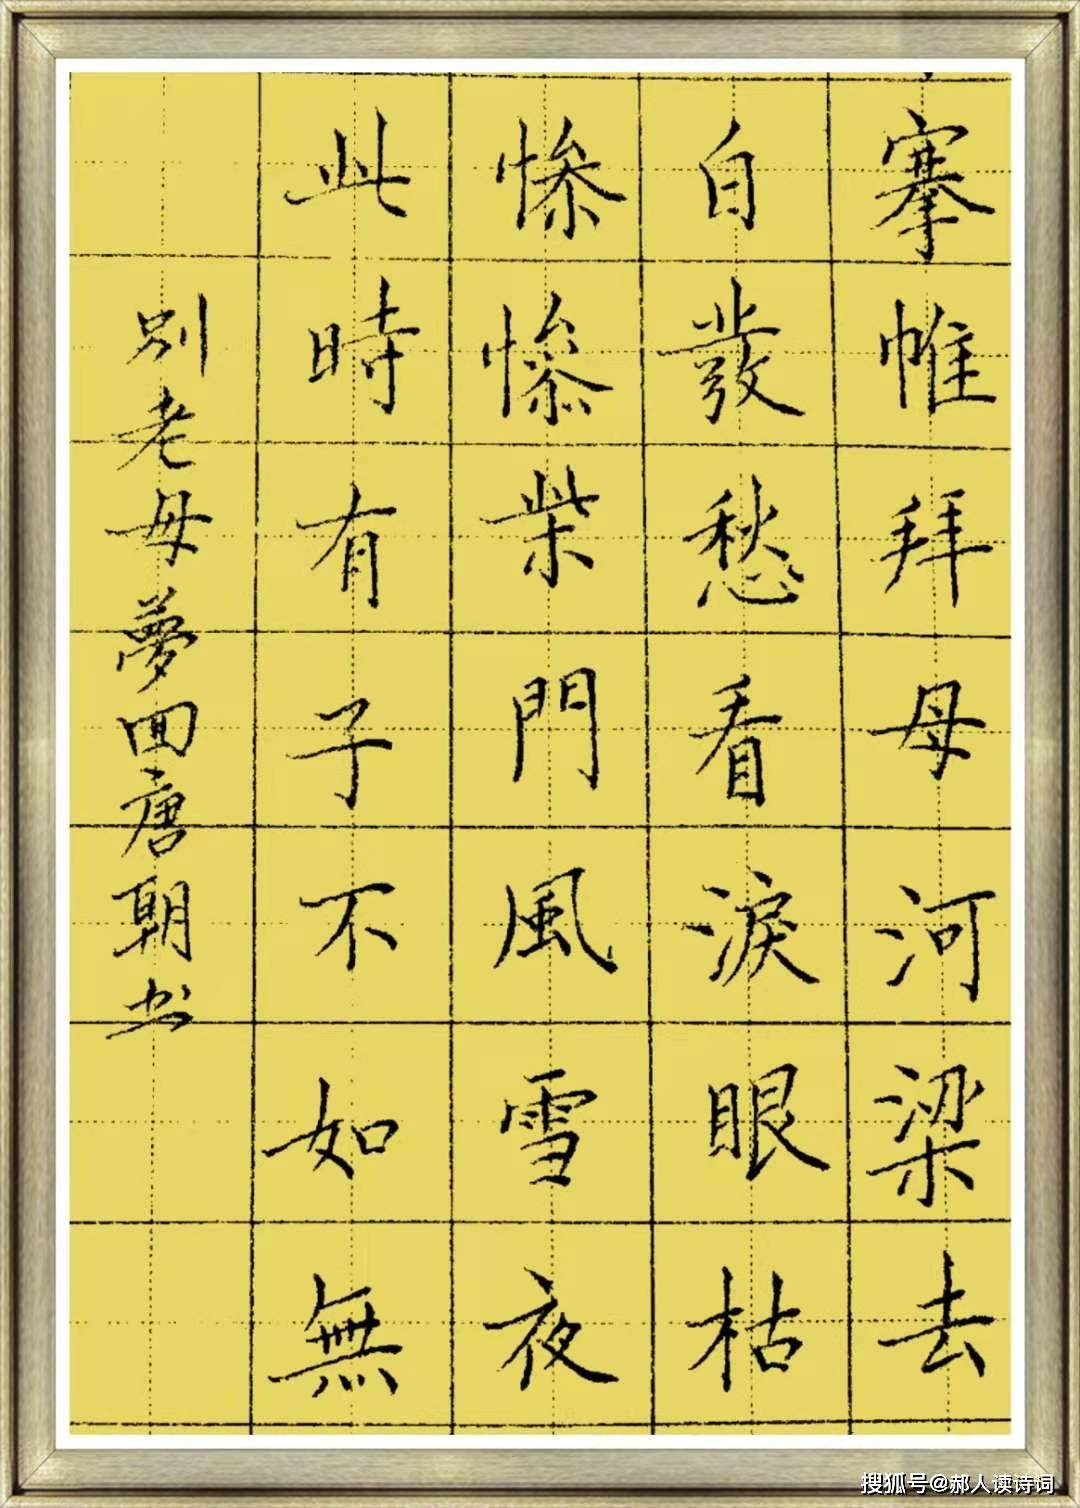 搴帷拜母河梁去
白發愁看淚眼枯
慘慘柴門風雪夜
此時有子不如無
別老母夢回唐朝书
搜狐号@郝人读诗词